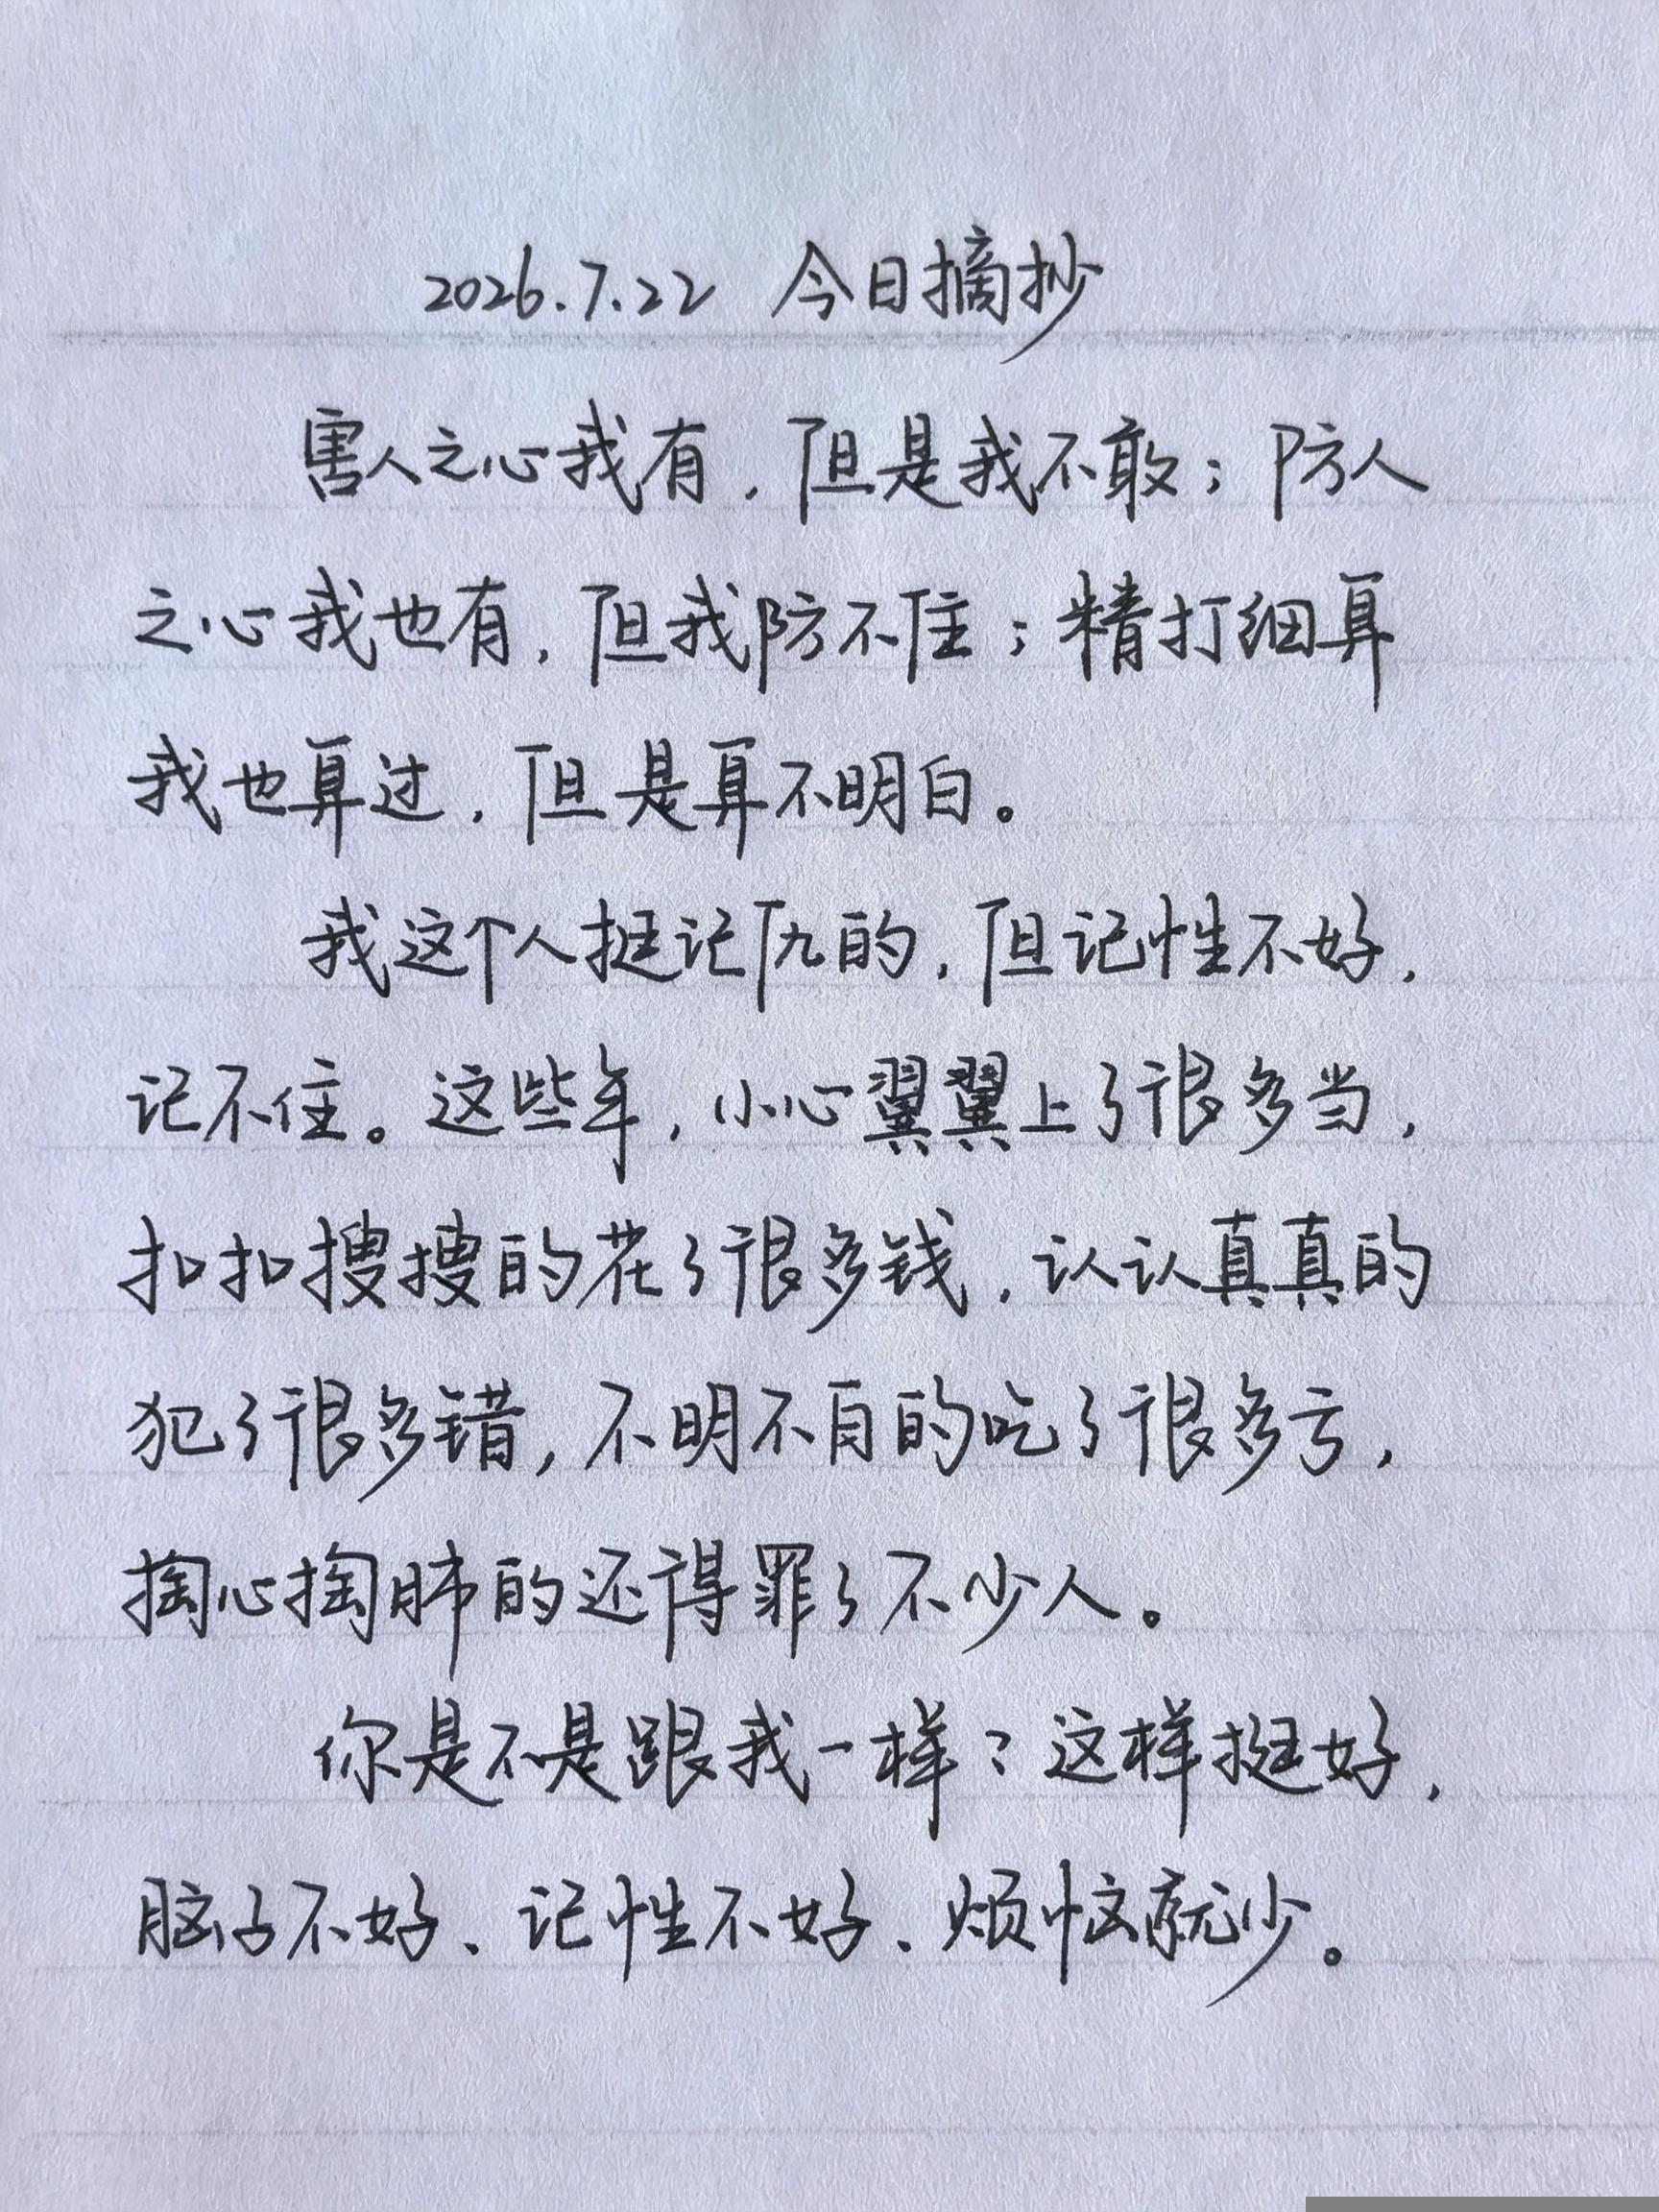 2026.7.22 今日摘抄
害人之心我有,但是我不敢;防人
之心我也有,但我防不住;精打细算
我也算过,但是算不明白。
我这个人挺记仇的,但记性不好,
记不住。这些年,小心翼翼上了很多当,
扣扣搜搜的花了很多钱,认认真真的
犯了很多错,不明不白的吃了很多亏,
掏心掏肺的还得罪了不少人。
你是不是跟我一样?这样挺好,
脑子不好、记性不好、烦恼就少。